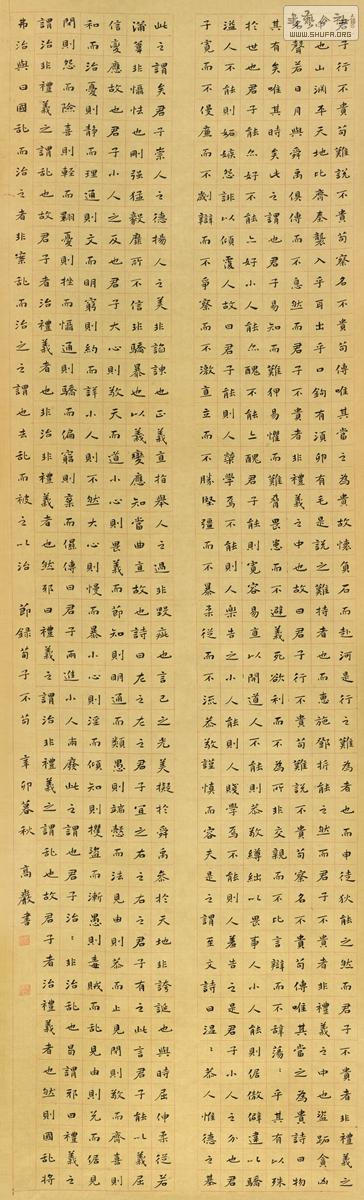 君子行不貴苟難說不貴苟察名不貴苟傳唯其當之為貴故懷負石而赴河是行之難為者也而申徒狄能之然而君子不貴者非禮義之
中也山淵平天地比齊秦襲入乎耳出乎口鉤有須卵有毛是說之難持者也而惠施鄧析能之然而君子不貴者非禮義之中也盜跖貪凶
名聲若日月與舜禹俱傳而不息然而君子不貴者非禮義之中也故曰君子行不貴苟難說不貴苟察名不貴苟傳唯其當之為貴詩曰物
其有矣唯其時矣此之謂也君子易知而難狎易懼而難脅畏患而不避義死欲利而不為所非交親而不比言辯而不辭蕩〻乎其有以殊
於世也君子能亦好不能亦好小人能亦醜不能亦醜君子能則寬容易直以開道人不能則恭敬繜絀以畏事人小人能則倨傲僻違以驕
溢人不能則妬嫉怨誹以傾覆人故曰君子能則人榮學焉不能則人樂告之小人能則人賤學焉不能則人羞告之是君子小人之分也君
子寬而不僈廉而不劌辯而不爭察而不激直立而不勝堅彊而不暴柔從而不流恭敬謹慎而容夫是之謂至文詩曰温〻恭人惟德之基
此之謂矣君子崇人之德揚人之美非諂諛也正義直指舉人之過非毀疵也言己之光美擬於舜禹參於天地非誇誕也與時屈伸柔從若
蒲葦非懾怯也剛强猛毅靡所不信非驕暴也以義變應知當曲直故也詩曰左之左之君子宜之右之右之君子有之此言君子能以義屈
信變應故也君子小人之反也君子大心則敬天而道小心則畏義而節知則明通而類愚則端愨而法見由則恭而止見閉則敬而齊喜則
和而治憂則靜而理通則文而明窮則約而詳小人則不然大心則慢而暴小心則淫而傾知則攫盜而漸愚則毒賊而亂見由則兌而倨見
閉則怨而險喜則輕而翾憂則挫而懾通則驕而偏窮則棄而儑傳曰君子兩進小人兩廢此之謂也君子治〻非治亂也曷謂邪曰禮義之
謂治非禮義之謂亂也故君子者治禮義者也非治非禮義者也然邪曰禮義之謂治非禮義之謂亂也故君子者治禮義者也然則國亂將
弗治與曰國亂而治之者非案亂而治之之謂也去亂而被之以治 節録荀子不苟 辛卯暮秋 高嚴書
WWW.SHUFA.ORG